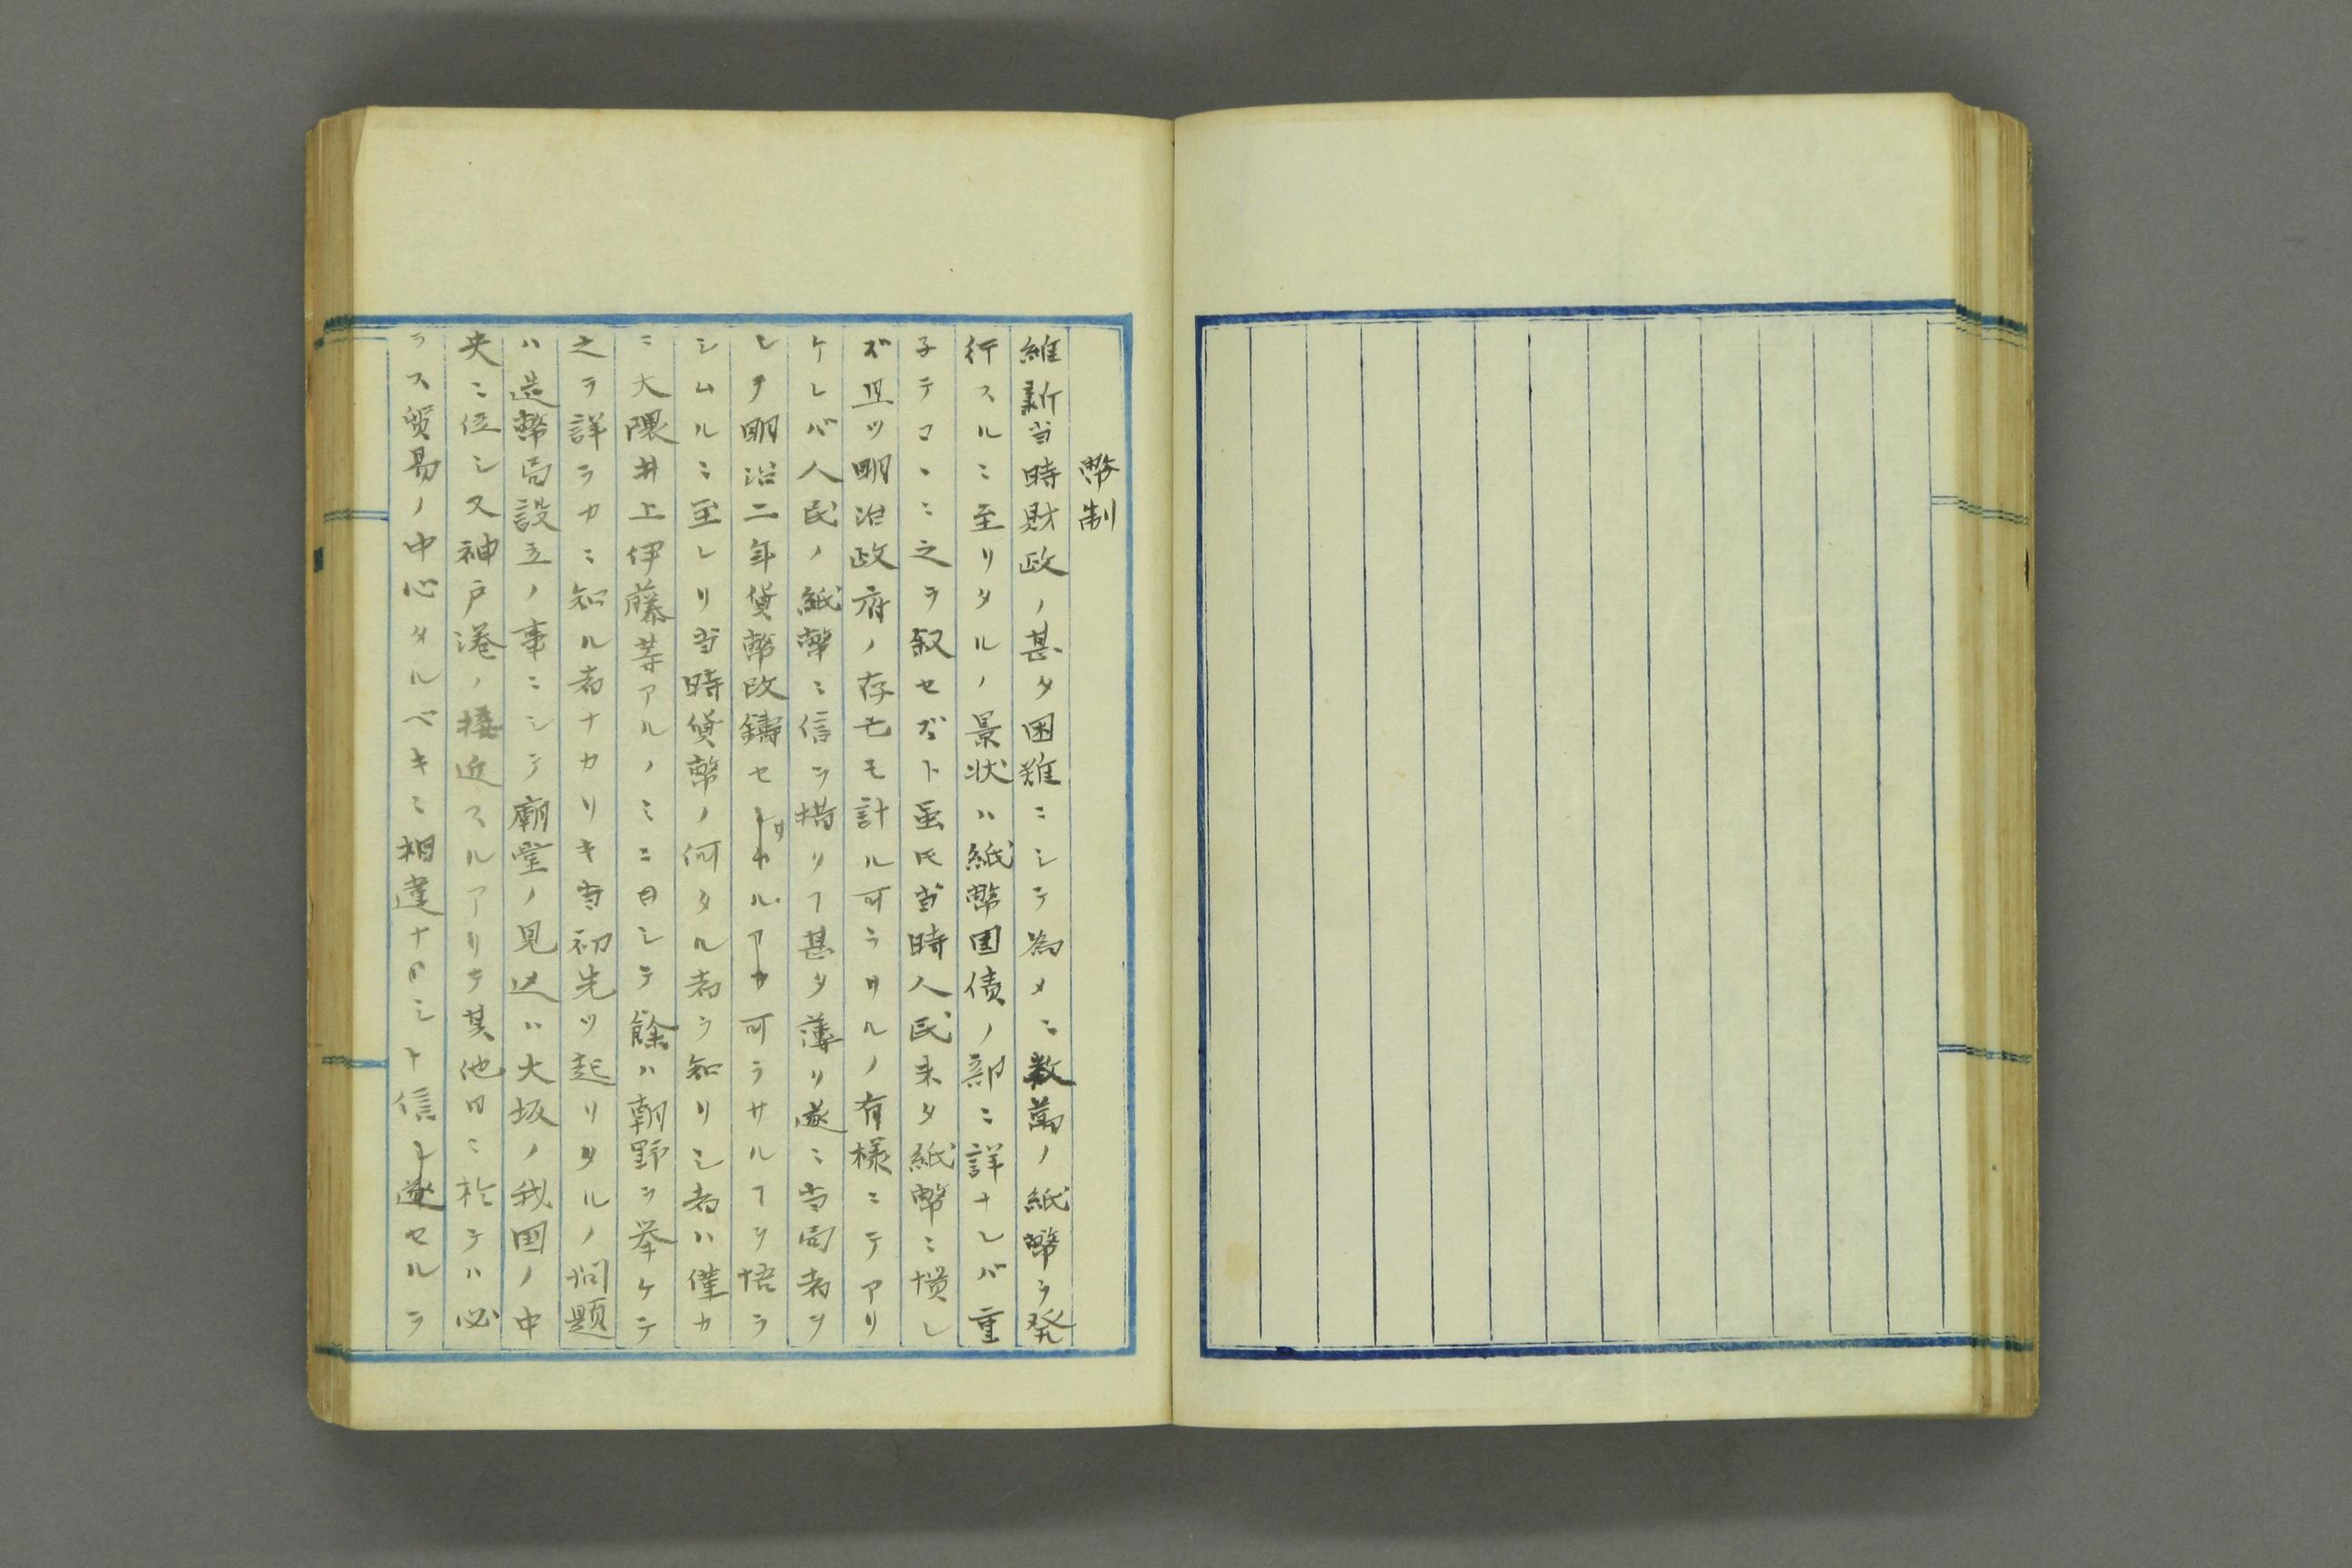 幣制
維新当時財政ノ甚タ困難ニシテ為メニ数萬ノ紙幣ヲ発
行スルニ至リタルノ景状ハ紙幣国債ノ部ニ詳ナレバ重
子テコヽニ之ヲ叙セズト虽氏当時人民未タ紙幣ニ慣レ
ズ且ツ明治政府ノ存亡モ計ル可ラサルノ有様ニテアリ
ケレバ人民ノ紙幣ニ信ヲ措クヿ甚タ薄ク遂ニ当局者ヲ
シテ明治二年貨幣改鋳セサル可ラサルヿヲ悟ラ
シムルニ至レリ当時貨幣ノ何タル者ヲ知リシ者ハ僅カ
ニ大隈井上伊藤等アルノミニ日シテ餘ハ朝野ヲ挙ケテ
之ヲ詳ラカニ知ル者ナカリキ当初先ツ起リタルノ問題
ハ造幣局設立ノ事ニシテ廟堂ノ見込ハ大坂ノ我国ノ中
央ニ位シ又神戸港ノ接近スルアリテ其他日ニ於テハ必
ラス貿易ノ中心タルベキニ相違ナロシト信セルヲ